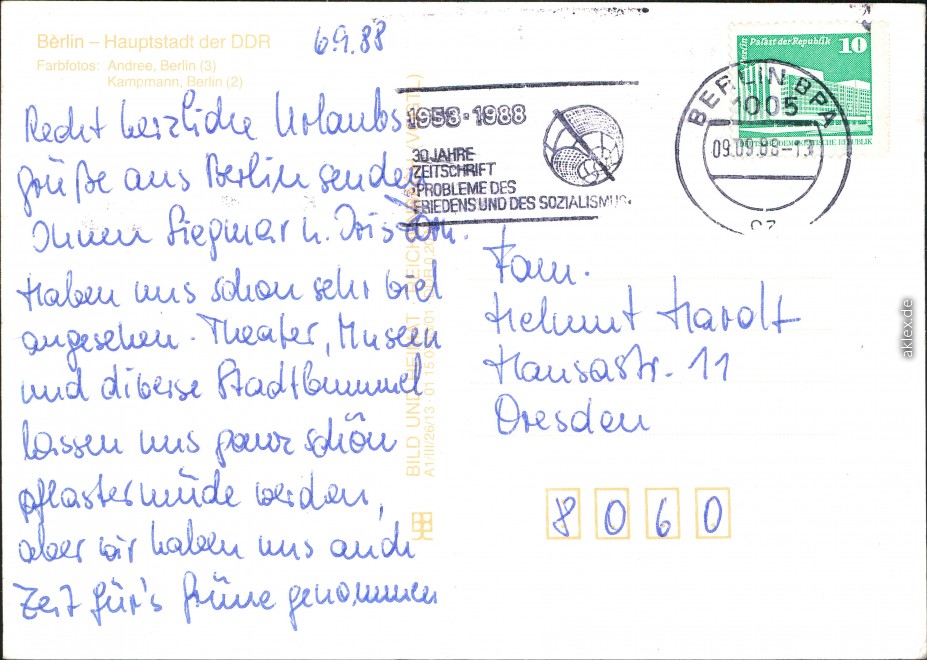 Berlin – Hauptstadt der DDR
Farbfotos: Andree, Berlin (3)
Kampmann, Berlin (2)
6.9.88
Recht herzliche Urlaubs
grüße aus Berlin senden
Ihnen Siegmar u.
Haben uns schon sehr viel
angesehen. Theater, Museen
und diverse Stadtbummel
lassen uns ganz schön
pflastermüde werden,
aber wir haben uns auch
Zeit für's Grüne genommen
1953-1988
30 JAHRE
ZEITSCHRIFT
PROBLEME DES
FRIEDENS UND DES SOZIALISMUS
Palast der Republik 10
DEUTSCHE DEMOKRATISCHE REPUBLIK
BERLIN BPA
1005
09.09.88
Fam.
Helmut Hardt
Hansastr. 11
Dresden
8060
BILD UND HEIMAT REICHENBACH (VOGTL)
A1/III/26/13 · 01 15 0
aklex.de